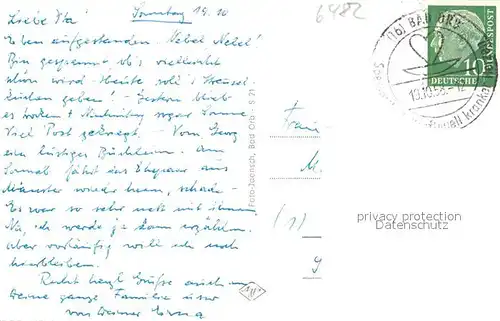 Sonntag 19.10
Liebe Ita!
Eben aufgestanden - Nebel Nebel!
Bin gespannt ob's vielleicht
schön wird - Heute soll's Streusel-
kuchen geben! - Gestern blieb
es trocken + Nachmittag sogar Sonne
Viel Post gekriegt - Vom Georg
ein lustiges Büchlein. Am
Sonnab fährt das Ehepaar aus
Münster wieder heim, schade -
Es war so sehr nett mit ihnen
Na, ich werde ja dann erzählen.
Aber vorläufig will ich noch
hierbleiben.
Recht herzl Grüße auch an
Deine ganze Familie
von Deiner Erna
6482
Foto-Joensch, Bad Orb - S 21
(16) BAD ORB
19.10.58
DEUTSCHE BUNDESPOST
10
Frau
M.
(1)
g
privacy protection
Datenschutz